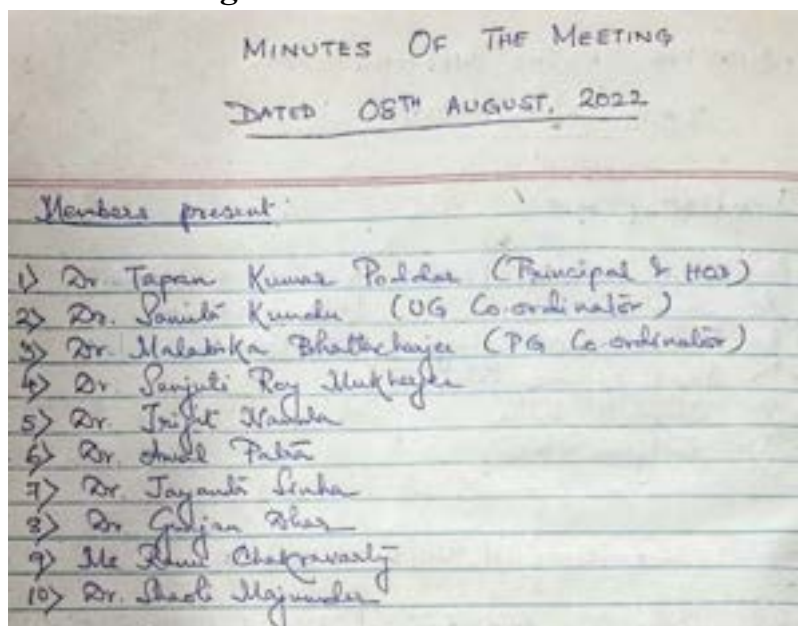 MINUTES OF THE MEETING
DATED 08TH AUGUST, 2022
Members present:
1) Dr. Tapan Kumar Poddar (Principal & HOD)
2) Dr. Kundu (UG Co-ordinator)
3) Dr. Malabika Bhattacharjee (PG Co-ordinator)
4) Dr Sanjuli Roy Mukherjee
5) Dr. Nanda
6) Dr. Patra
7) Dr. Jayanta Sinha
8) Dr Gunjan Dhar
9) Chakravarty
10) Dr. Shaoli Majumder